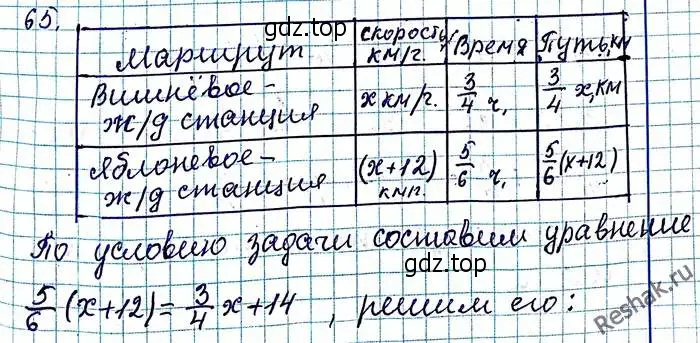 65.
gdz.top
Маршрут
скорость, км/г.
Время
Путь, км
Вишнёвое -
ж/д станция
х км/г.
3/4 ч,
3/4 х, км
Яблоневое -
ж/д станция
(х+12) км/г.
5/6 ч,
5/6 (х+12)
По условию задачи составим уравнение
gdz.top
5/6 (х+12) = 3/4 х + 14 , решим его:
Reshak.ru